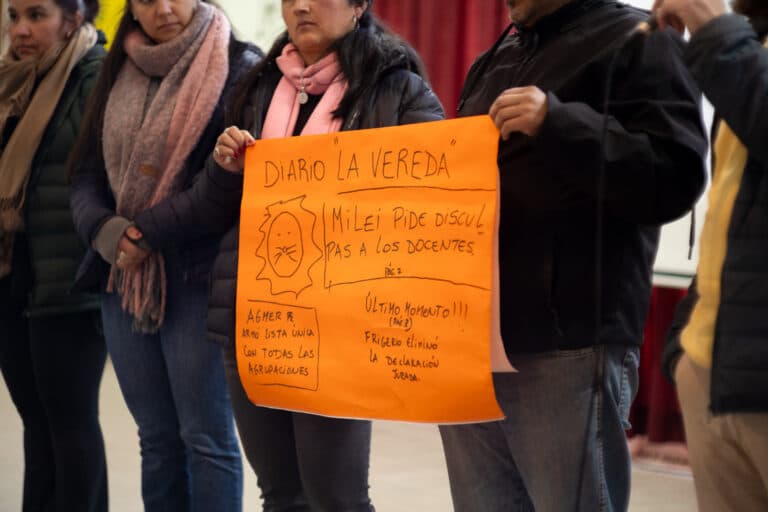 DIARIO "LA VEREDA"
MILEI PIDE DISCUL
PAS A LOS DOCENTES.
PÁG 2
AGMER PR
ARMÓ LISTA ÚNICA
CON TODAS LAS
AGRUPACIONES
ÚLTIMO MOMENTO!!!
FRIGERIO ELIMINÓ
LA DECLARACIÓN
JURADA.